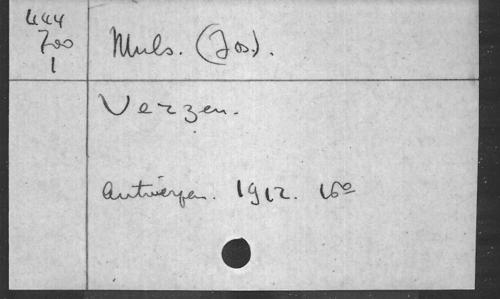 444
700
1
Muls. (Jos.).
Verzen.
Antwerpen. 1912. 16°